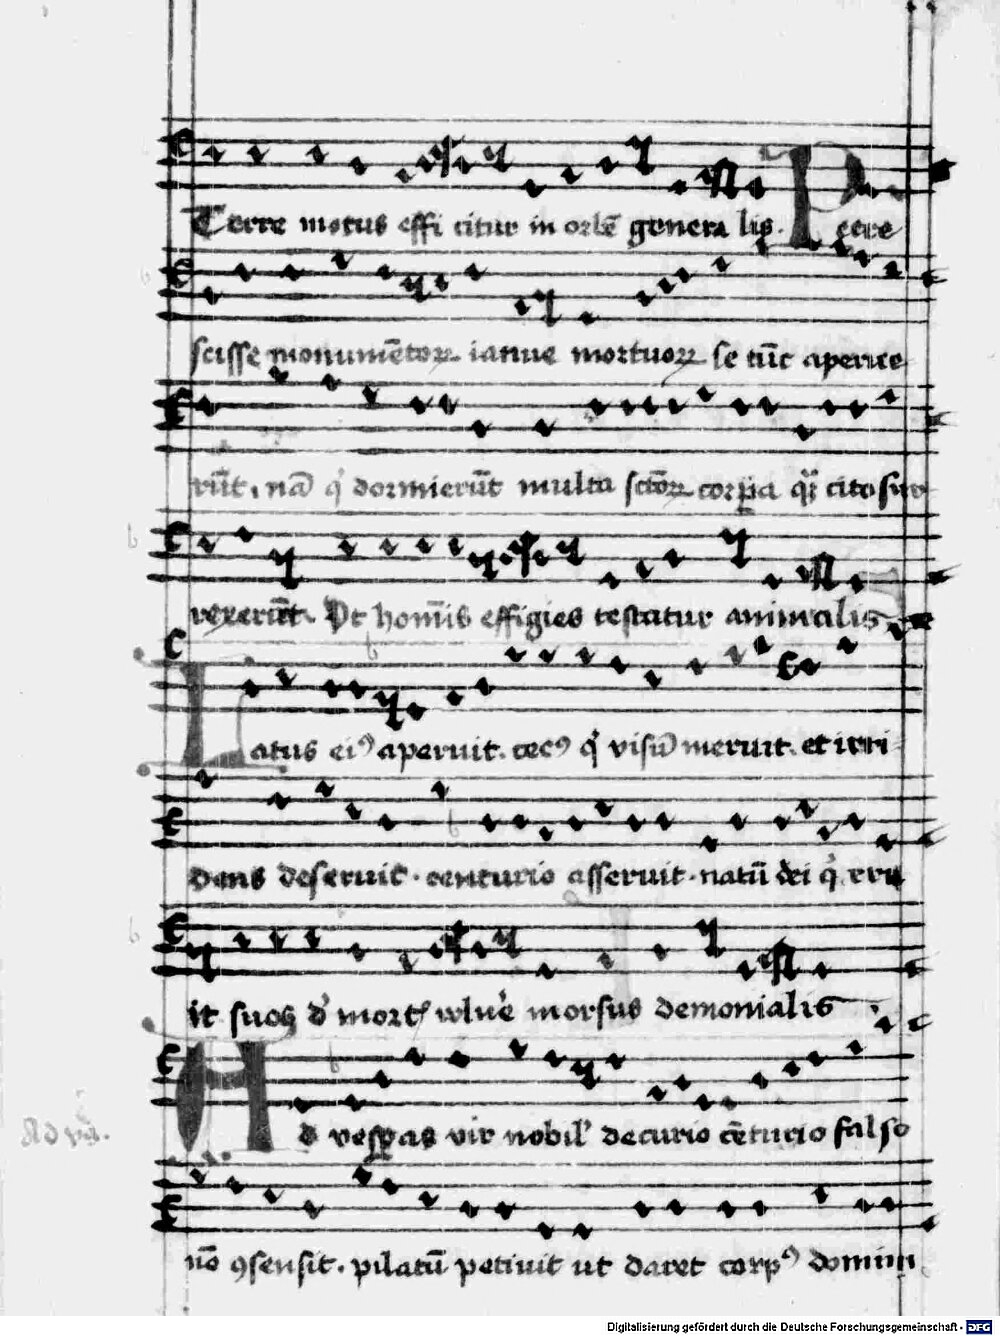 Terre motus effi citur in orbē genera lis. Petre
scisse monumētoꝝ ianue mortuoꝝ se tūc aperue
rūt. nā q̇ dormierūt multa sctōꝝ corꝑa q̄ cito sur
rexerūt. Vt homīs effigies testatur animalis
Latus eiꝰ aperuit. cecꝰ q̇ visū meruit. et irri
dens deseruit. centurio asseruit. natū dei q̇ eru
it suos d' mort' morsus demonialis
Ad vesꝑas vir nobil' decurio cēturio falso
nō ꝯsensit. pilatū petiuit ut daret corpꝰ domini
Digitalisierung gefördert durch die Deutsche Forschungsgemeinschaft - DFG